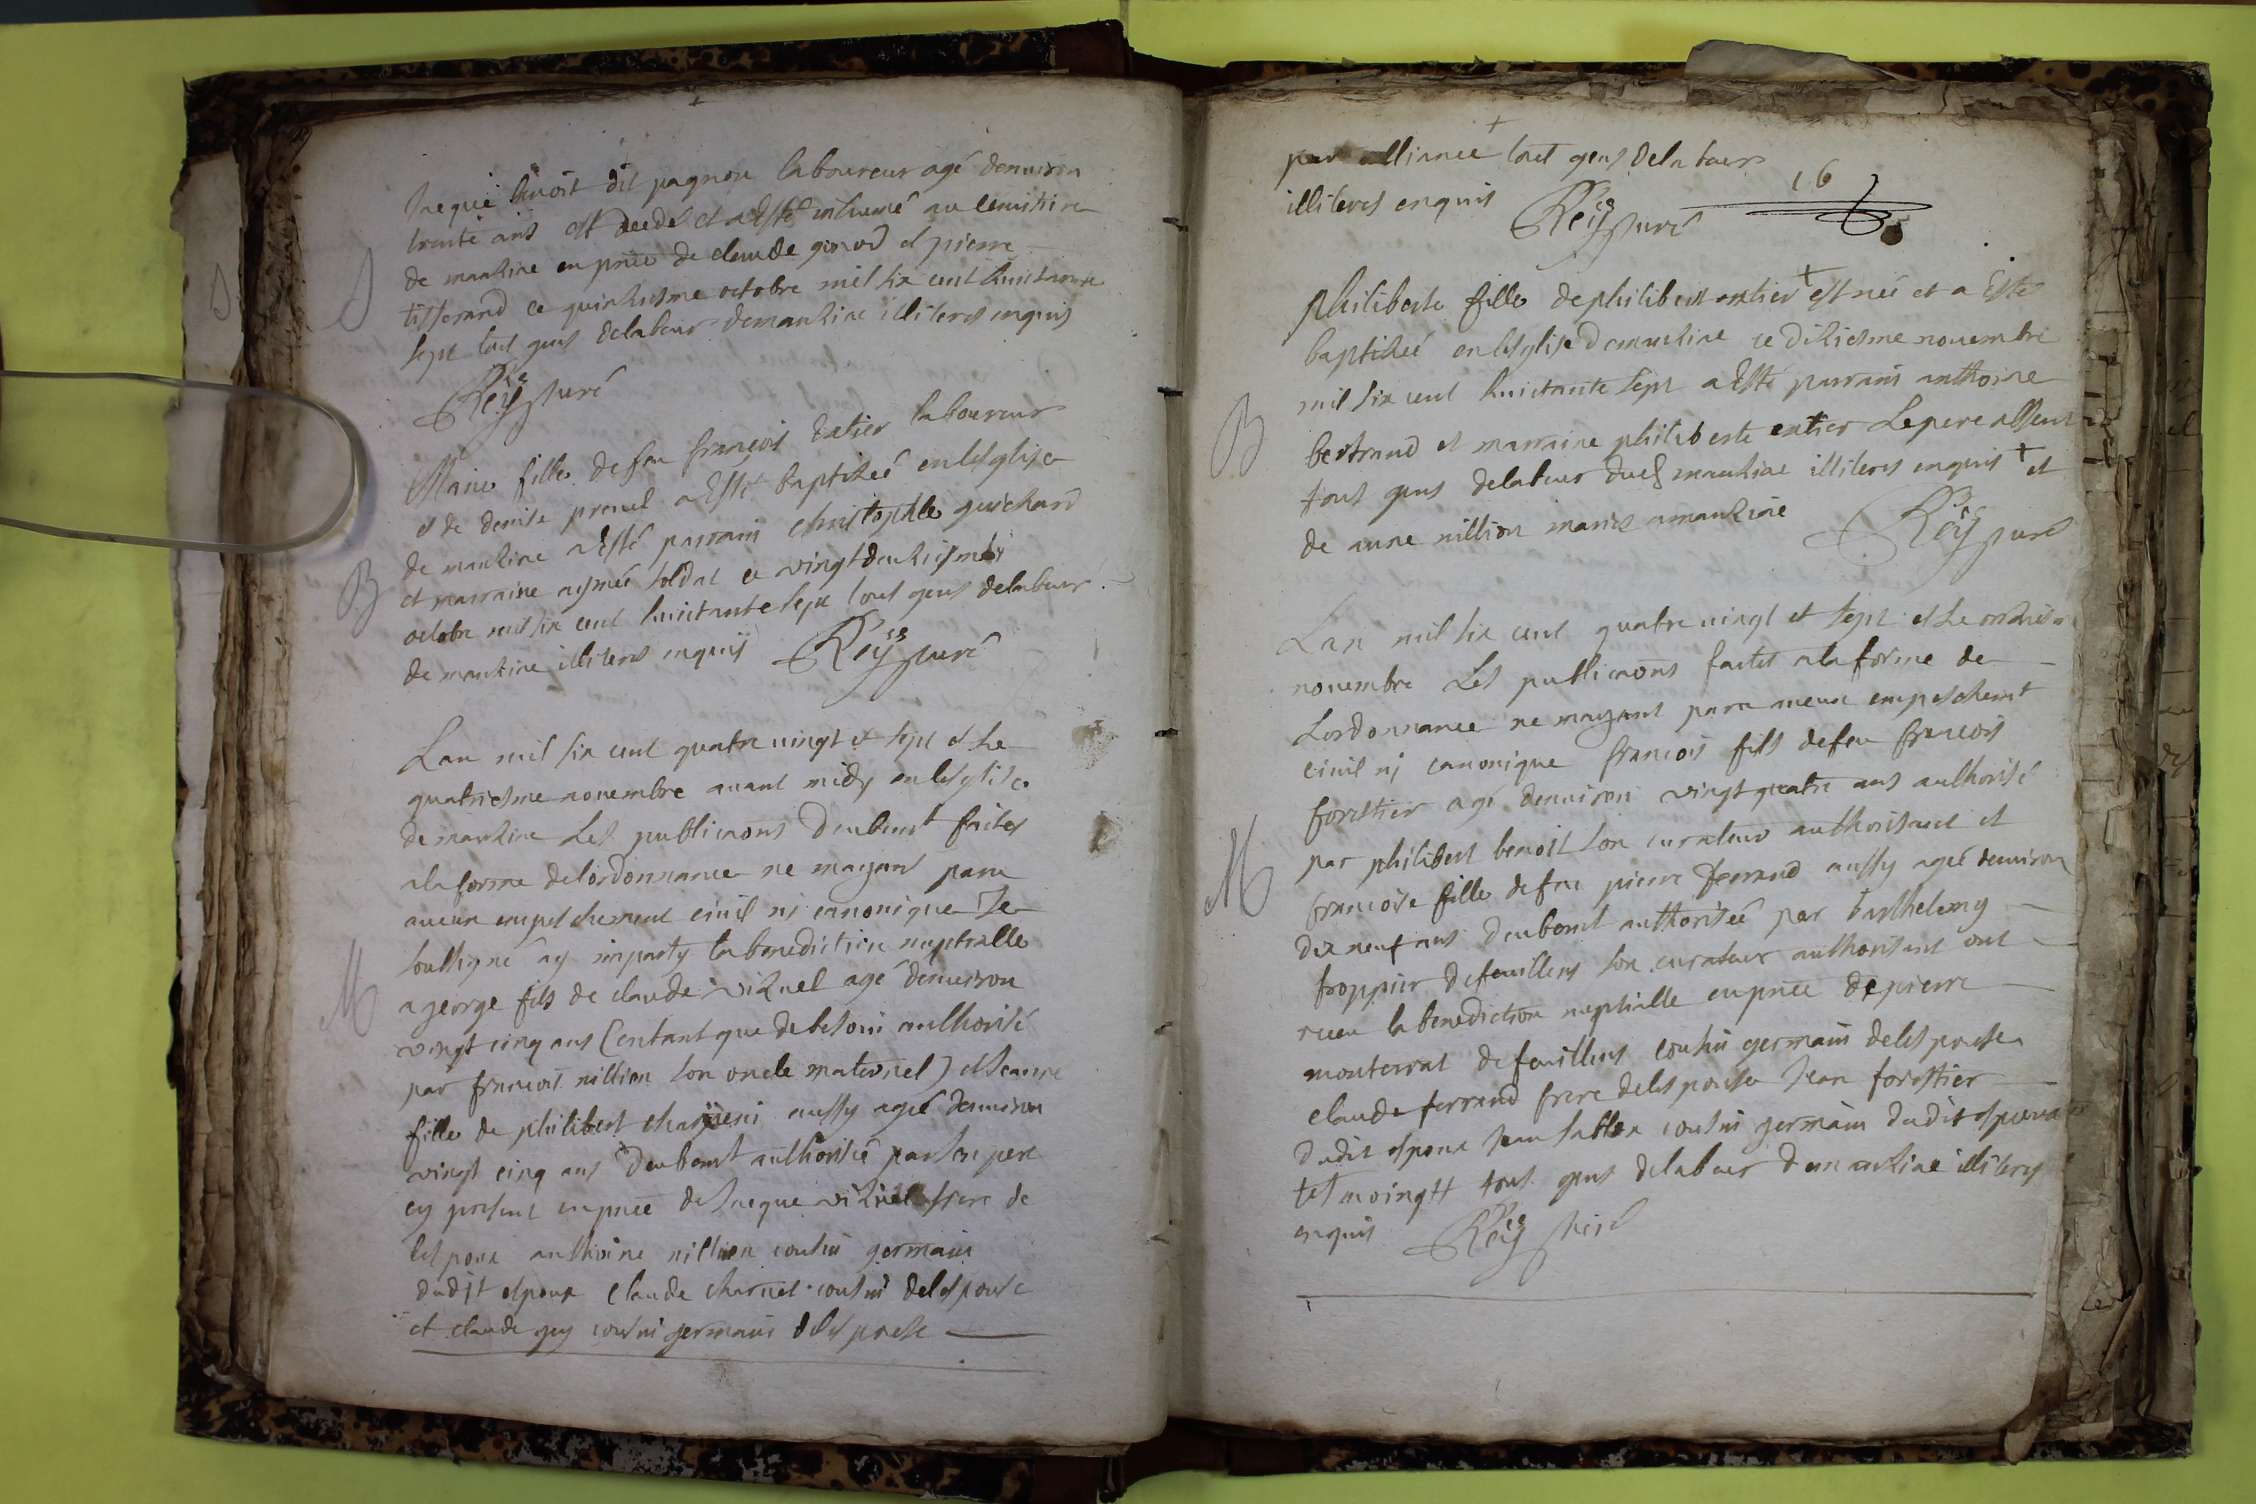 S
Jaque benoit dit pagnon laboureur agé denuiron
trante ans est decdé et a Esté inhumé au Cemitiere
de manziae en pnce de claude et pierre
tisserand ce quinziesme octobre mil six cent huictante
sept tous gens delabeur demanziae illiteres enquis
Reÿ curé
B
Marie fille de feu françois datier laboureur
et de denise prenel a Esté baptizeé en lesglise
de manziae a Esté parrain Christophle guichard
et marraine aymeé soldat ce vingt deuziesme
octobre mil six cent huictante sept tous gens delabeur
de manziae illiteres enquis Reÿ curé
M
Lan mil six cent quatre vingt et sept et le
quatriesme nouembre auant midy en lesglise
de manziae Les publicaons deubemt faites
ala forme delordonnance ne mayant paru
aucun empeschement ciuil ni canonique Je
soussigné ay imparty la benediction nuptialle
a george fils de claude viznel agé denuiron
vingt cinq ans (entant que de besoin authorisé
par francois nillion son oncle maternel) et Jeanne
fille de philibert aussy ageé denuiron
vingt cinq ans deubemt authoriseé par son pere
cy present en pnce de Jaque viznel frere de
lespoux anthoine nillion cousin germain
dudit espoux Claude charuet cousin delespouse
et claude guy cousin germain delespouse
par alliance tout gens delabeur
illiteres enquis Reÿ curé
16
B
philiberte fille de philibert entier + est née et a Esté
baptizeé en lesglise demanziae ce diziesme nouembre
mil six cent huictante sept a Esté parrain anthoine
bertrand et marraine philiberte entier Le pere absent
tous gens delabeur dud manziae illiteres enquis + et
de anne nillion mariés a manziae Reÿ curé
M
Lan mil six cent quatre vingt et sept et le
nouembre Les publicaons faites ala forme de
Lordonnance ne mayant paru aucun empeschemt
ciuil ni canonique francois fils defeu francois
forestier agé denuiron vingt quatre ans authorisé
par philibert benoit son curateur authorisant et
francoise fille defeu pierre ferrand aussy ageé denuiron
dix neuf ans deubemt authoriseé par barthelemy
froppier defeuillens son curateur authorisant ont
receu la benediction nuptialle en pnce de pierre
monterrat de feuillens cousin germain delespouse
claude ferrand frere delespouse Jean forestier
dudit espoux Jean sablon cousin germain dudit espoux
tesmoingtz tous gens delabeur demanziae illiteres
enquis Reÿ curé